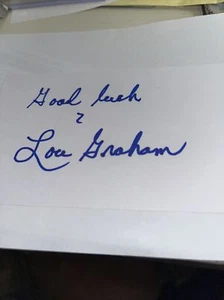 Good luck
Lou Graham